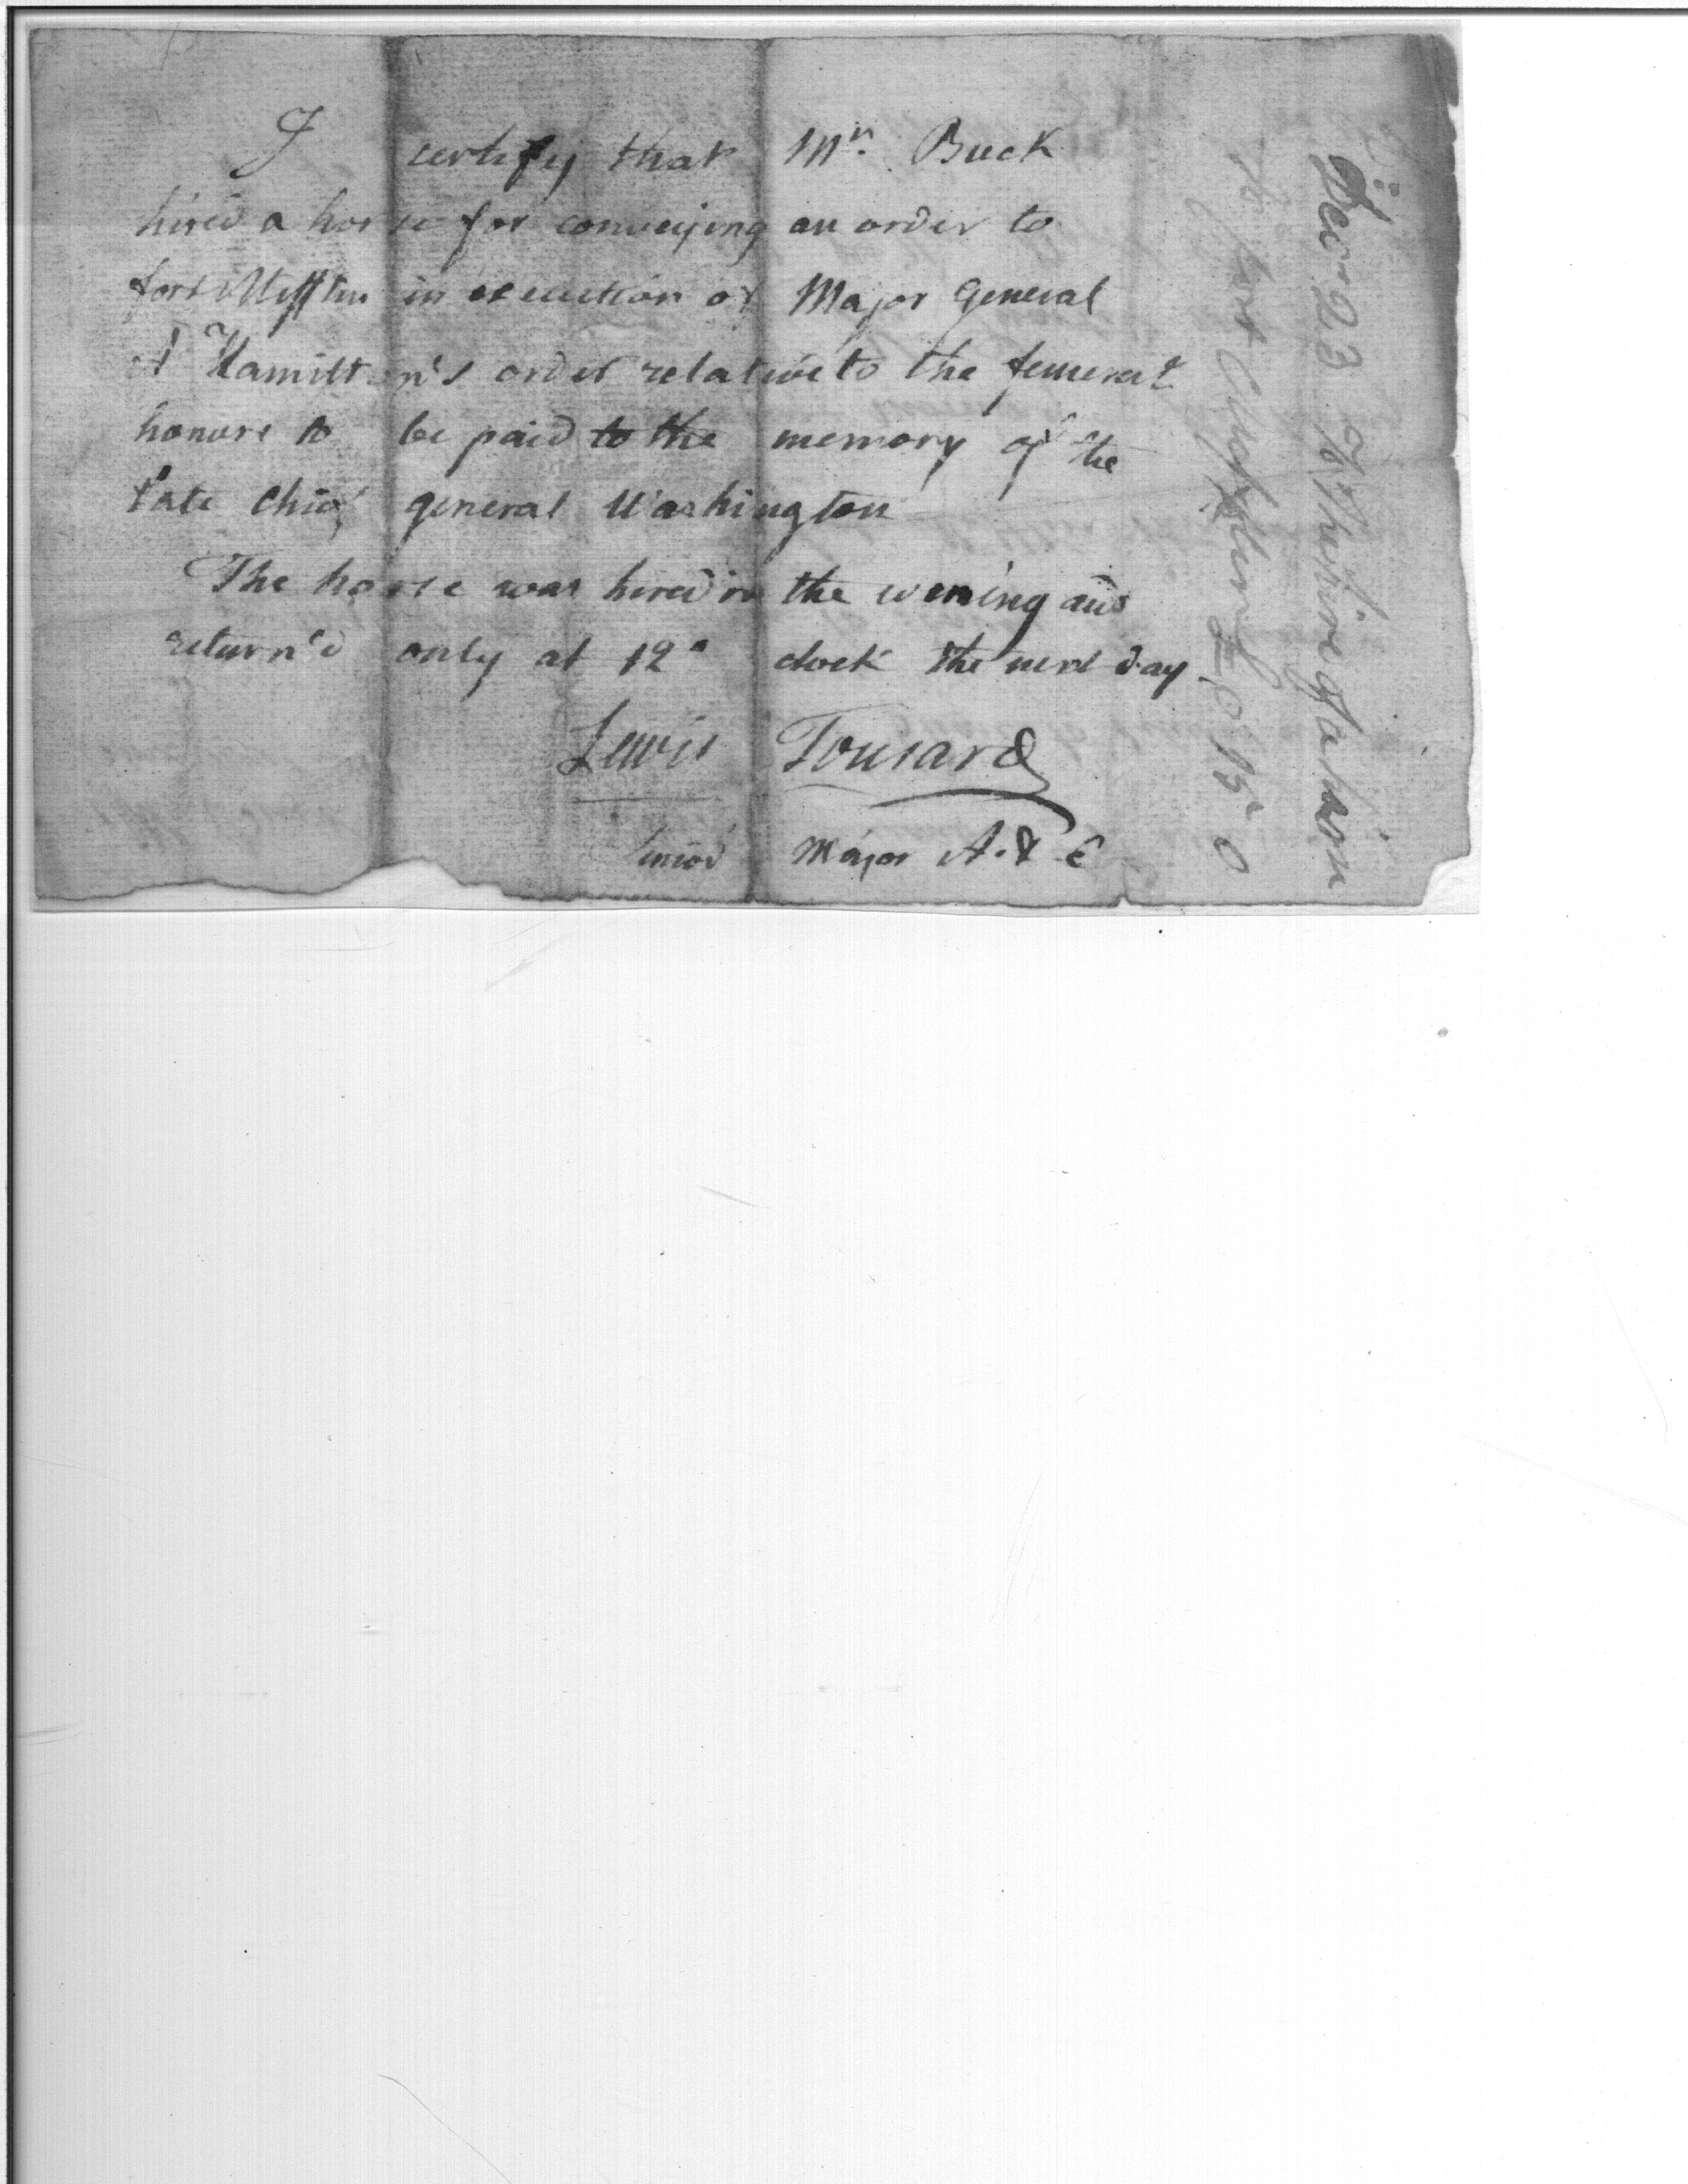 I certify that Mr. Buck
hired a horse for conveying an order to
fort Mifflin in execution of Major General
A Hamilton's order relative to the funeral
honors to be paid to the memory of the
late Chief general Washington
The horse was hired in the evening and
return'd only at 12 o clock the next day.
Lewis Tousard
Senior Major A. & E
Dec. 23 To the hire of a horse
to fort Mifflin £ 0 15 0